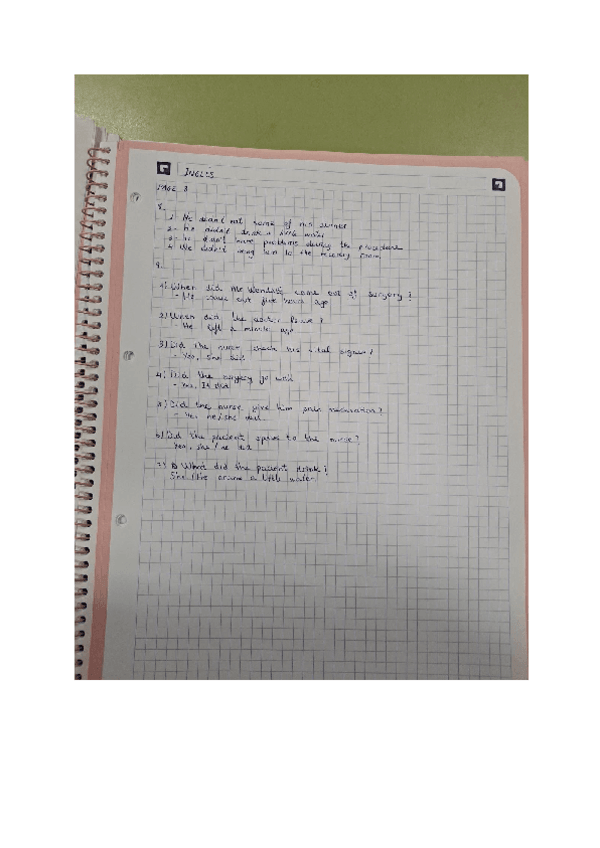 INGLES
PAGE 8
8.
1- He didn't eat some of his dinner
2- He didn't drink a little water
3- He didn't have problems during the procedure
4- We didn't bring him to the recovery room
9.
1) When did Mr Wendell come out of surgery?
- He came out five hours ago
2) When did the doctor leave?
- He left a minute ago
3) Did the nurse check his vital organs?
- Yes, she did
4) Did the surgery go well
- Yes, It did
5) Did the nurse give him pain medication?
- Yes he/she did.
6) Did the patient speak to the nurse?
Yes, she/he did
7) What did the patient drink?
She/He drank a little water